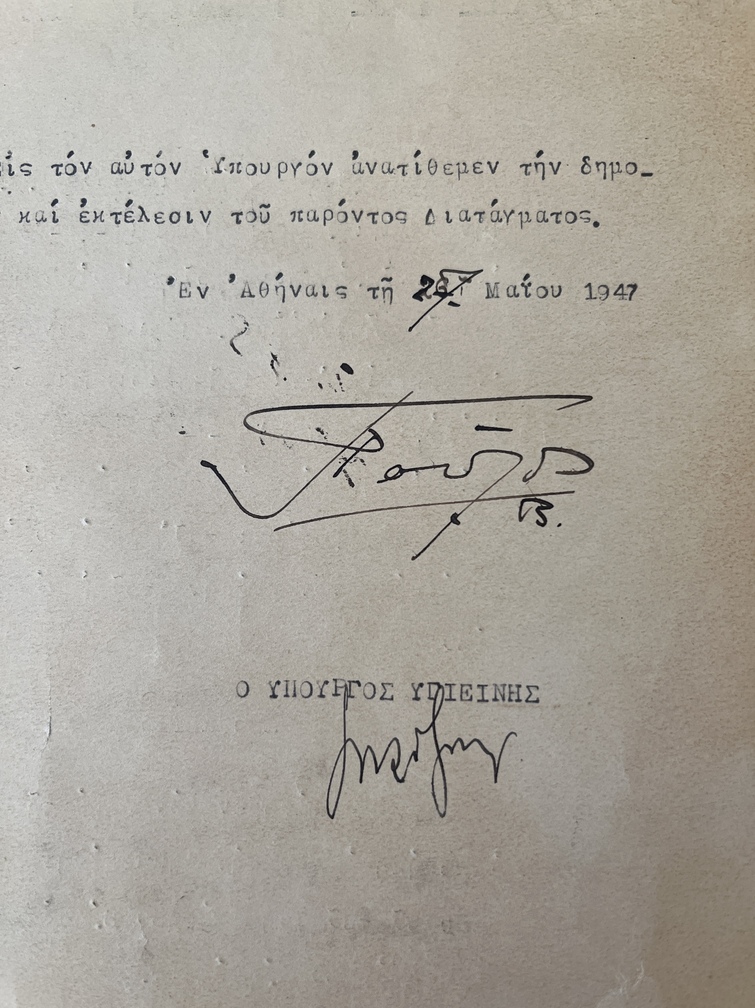 είς τόν αὐτόν Ὑπουργόν ἀνατίθεμεν τήν δημο-
καί ἐκτέλεσιν τοῦ παρόντος Διατάγματος.
Ἐν Ἀθήναις τῇ 26 Μαΐου 1947
Παῦλος
Β.
Ο ΥΠΟΥΡΓΟΣ ΥΓΙΕΙΝΗΣ